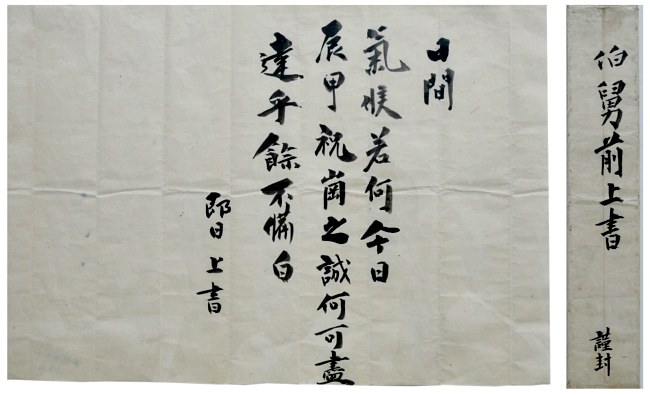 伯舅前上書
謹封
日間
氣候若何今日
辰甲祝崗之誠何可盡
達乎餘不備白
即日上書